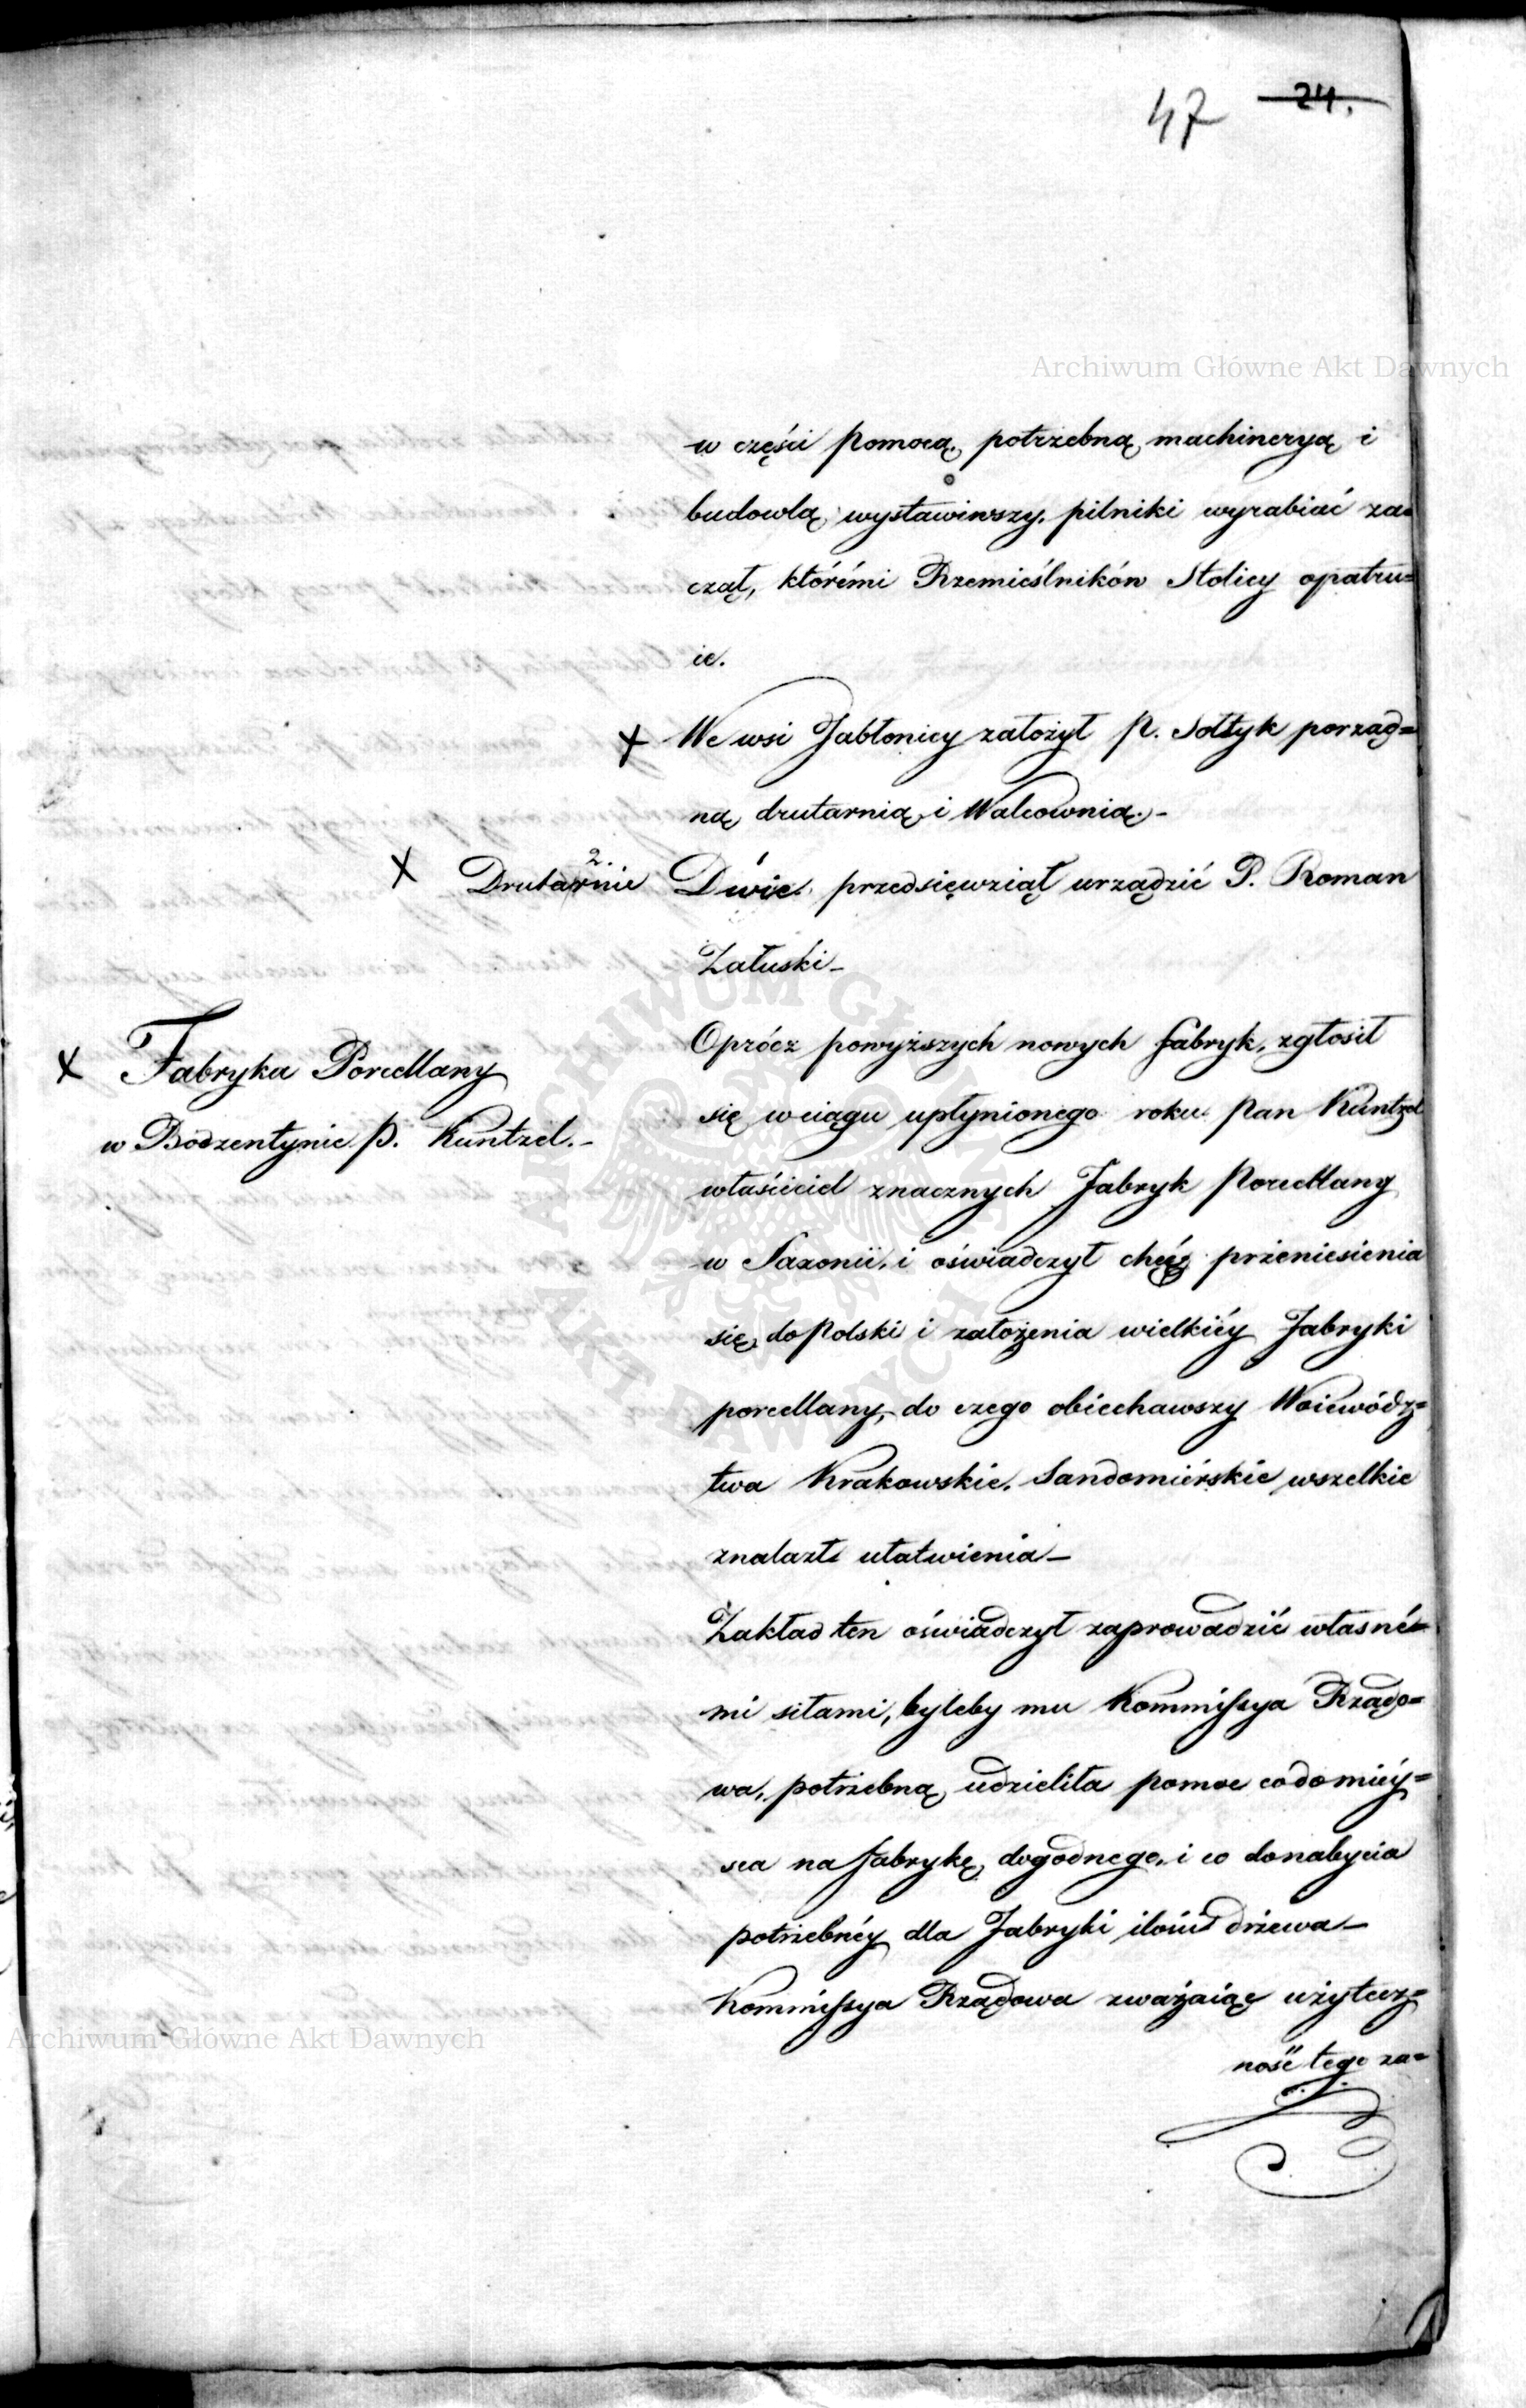 47 24.
Archiwum Główne Akt Dawnych
w części pomocą, potrzebną machineryą i
budowlą wystawiwszy, pilniki wyrabiać za=
czął, któremi Rzemieślników Stolicy opatru=
ie.
X We wsi Jabłonicy założył P. Sołtyk porząd=
ną drutarnią i Walcownią.-
X Drutarnie 2. Dwie przedsięwziął urządzić P. Roman
Załuski-
X Fabryka Porcellany
w Bodzentynie P. Kuntzel.-
Oprócz powyższych nowych fabryk, zgłosił
się w ciągu upłynionego roku Pan Kuntzel
właściciel znacznych Fabryk Porcellany
w Saxonii, i oświadczył chęć przeniesienia
się do Polski i założenia wielkiéy Fabryki
porcellany, do czego obiechawszy Woiewódz=
twa Krakowskie, Sandomiérskie wszelkie
znalazł ułatwienia-
Zakład ten oświadczył zaprowadzić własné=
mi siłami, byleby mu Kommissya Rządo=
wa, potrzebną udzieliła pomoc co do miéy=
sca na fabrykę dogodnego, i co do nabycia
potrzebnéy dla Fabryki ilości drzewa-
Kommissya Rządowa zważaiąc użytecz=
ność tego za=
Archiwum Główne Akt Dawnych
ARCHIWUM GŁÓWNE
AKT DAWNYCH